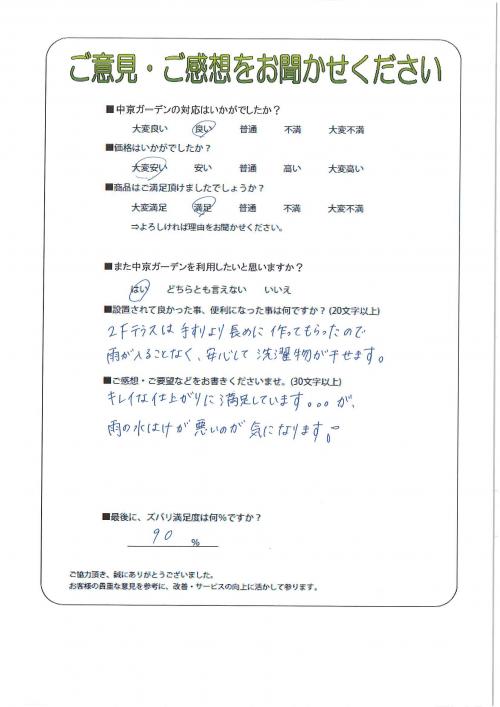 ご意見・ご感想をお聞かせください
■中京ガーデンの対応はいかがでしたか？
大変良い 良い 普通 不満 大変不満
■価格はいかがでしたか？
大変安い 安い 普通 高い 大変高い
■商品はご満足頂けましたでしょうか？
大変満足 満足 普通 不満 大変不満
⇒よろしければ理由をお聞かせください。
■また中京ガーデンを利用したいと思いますか？
はい どちらとも言えない いいえ
■設置されて良かった事、便利になった事は何ですか？(20文字以上)
2Fテラスは手すりより長めに作ってもらったので
雨が入ることなく、安心して洗濯物が干せます。
■ご感想・ご要望などをお書きくださいませ。(30文字以上)
キレイな仕上がりに満足しています。。。が、
雨の水はけが悪いのが気になります。
■最後に、ズバリ満足度は何％ですか？
90 %
ご協力頂き、誠にありがとうございました。
お客様の貴重な意見を参考に、改善・サービスの向上に活かして参ります。